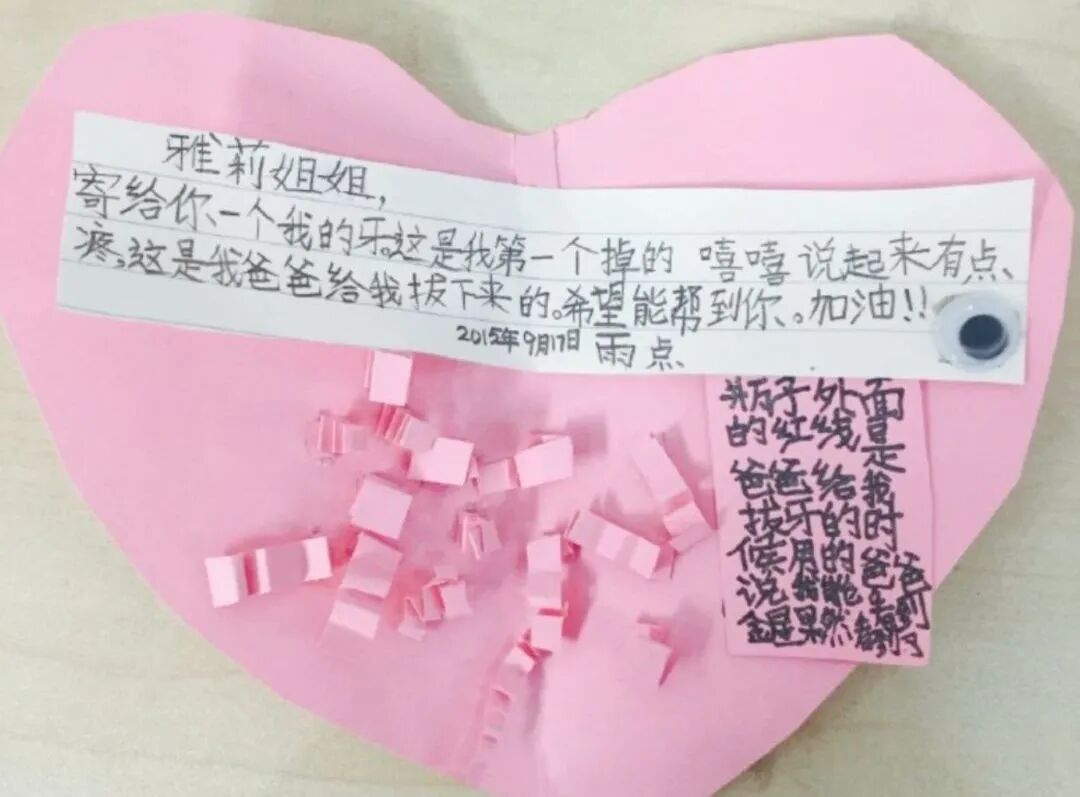 雅莉姐姐,
寄给你、一个我的牙。这是我第一个掉的 嘻嘻 说起来有点、
疼,这是我爸爸给我拔下来的。希望能帮到你、。加油!!
2015年9月17日 雨点
瓶子外面
的红线是
爸爸给我
拔牙的时
候用的爸爸
说我能
果然